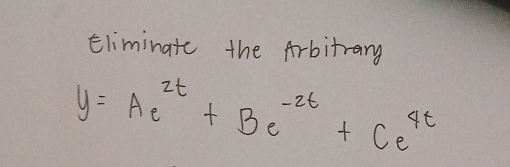 Eliminate the Arbitrary
y = Ae^{2t} + Be^{-2t} + Ce^{4t}